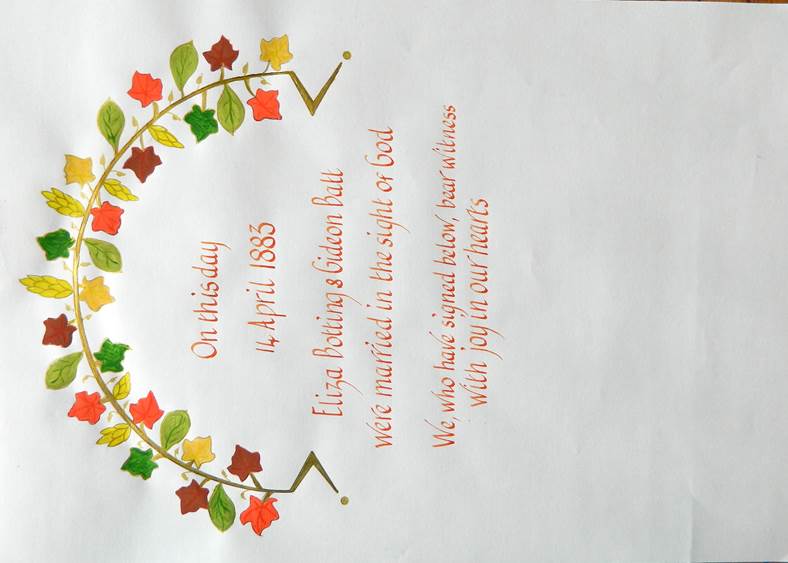 On this day
14 April 1883
Eliza Botting & Gideon Batt
were married in the sight of God
We, who have signed below, bear witness
with joy in our hearts